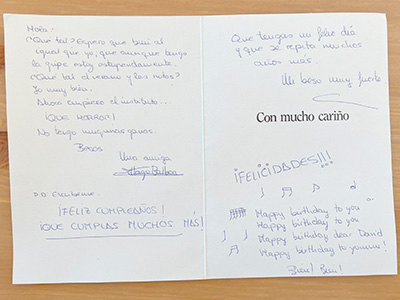 Hola:
¿Que tal? Espero que bien al
igual que yo, que aunque tengo
la gripe estoy estupendamente.
¿Que tal el verano y las notas?
Yo muy bien.
Ahora empieza el instituto...
¡QUE HORROR!
No tengo muchas ganas.
Besos
Una amiga
P.D. Escríbeme.
¡FELIZ CUMPLEAÑOS!
¡QUE CUMPLAS MUCHOS MÁS!
Que tengas un feliz día
y que se repita muchos
años más.
Un beso muy fuerte
Con mucho cariño
¡FELICIDADES!!!
Happy birthday to you
Happy birthday to you
Happy birthday, dear David
Happy birthday to youuuu!